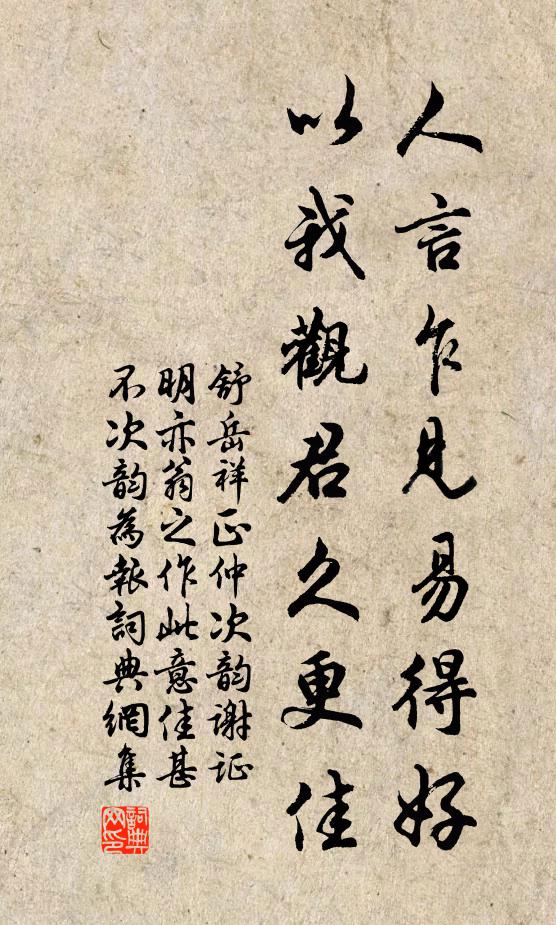 人言乍見易得好
以我觀君久更佳
舒岳祥正仲次韵謝证
明亦翁之作此意佳甚
不次韵為報詞典網集
詞典
网印